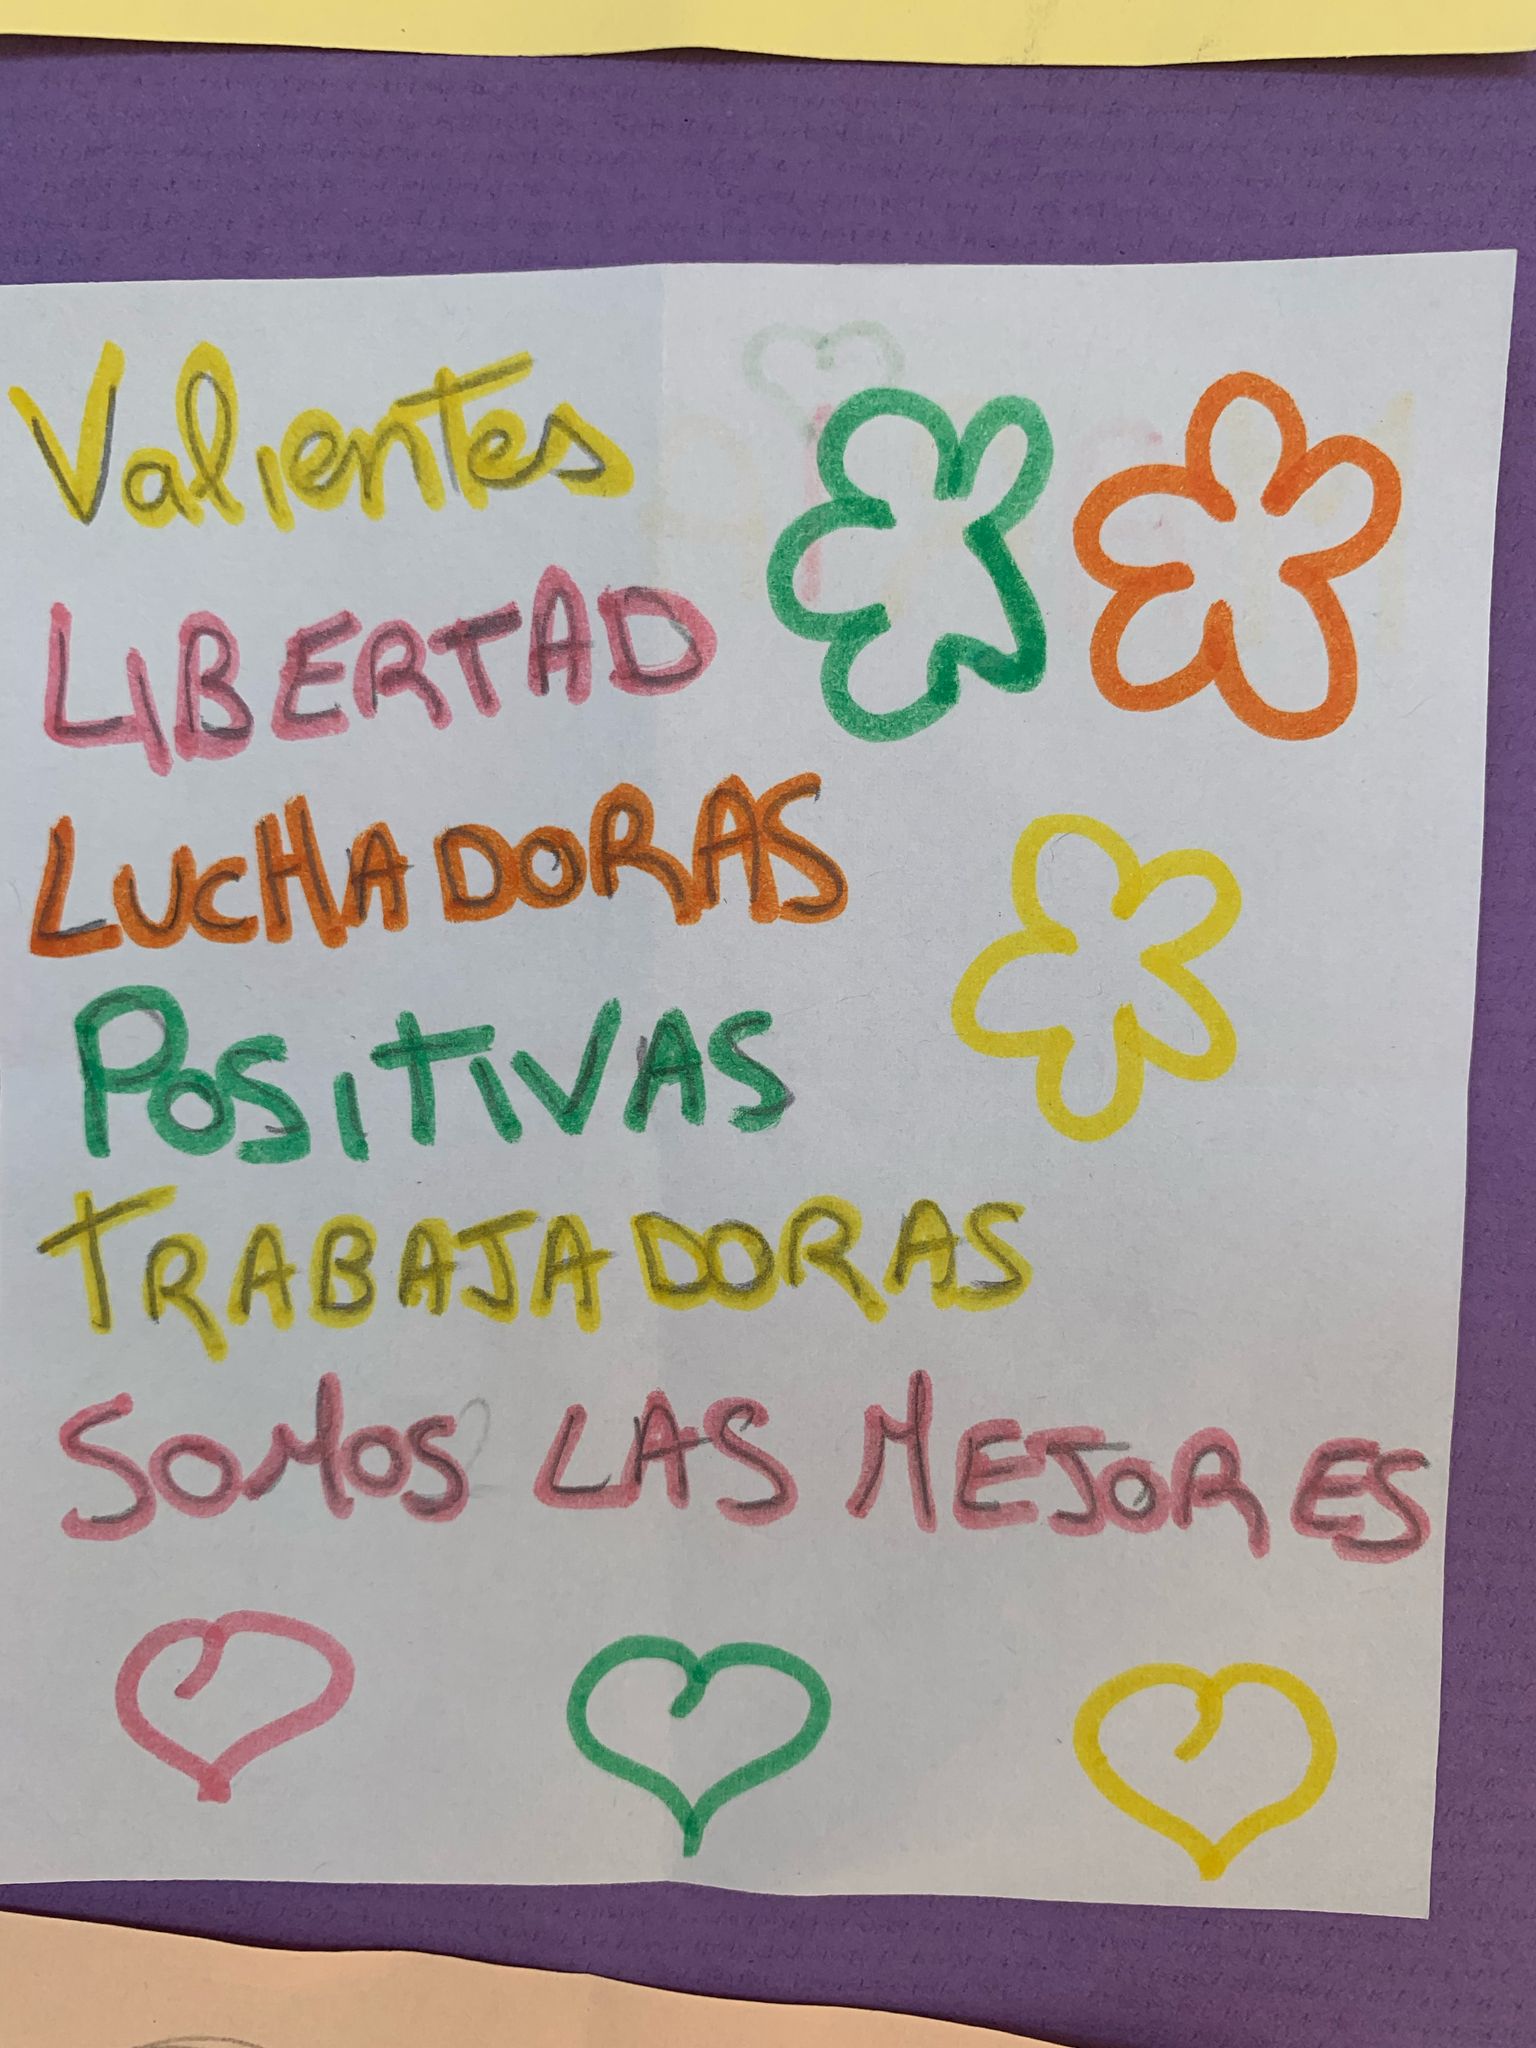 Valientes
LIBERTAD
LUCHADORAS
POSITIVAS
TRABAJADORAS
SOMOS LAS MEJORES